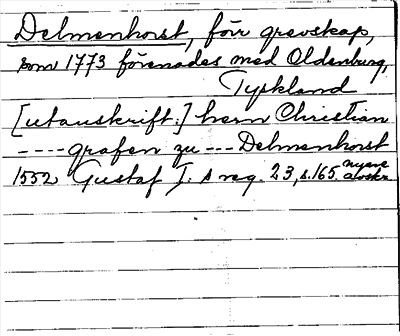 Delmenhorst, förr grevskap,
som 1773 förenades med Oldenburg,
Tyskland
[utanskrift:] herrn Christian
---- grafen zu --- Delmenhorst
1552 Gustaf I:s reg. 23, s. 165. nyare avskr.